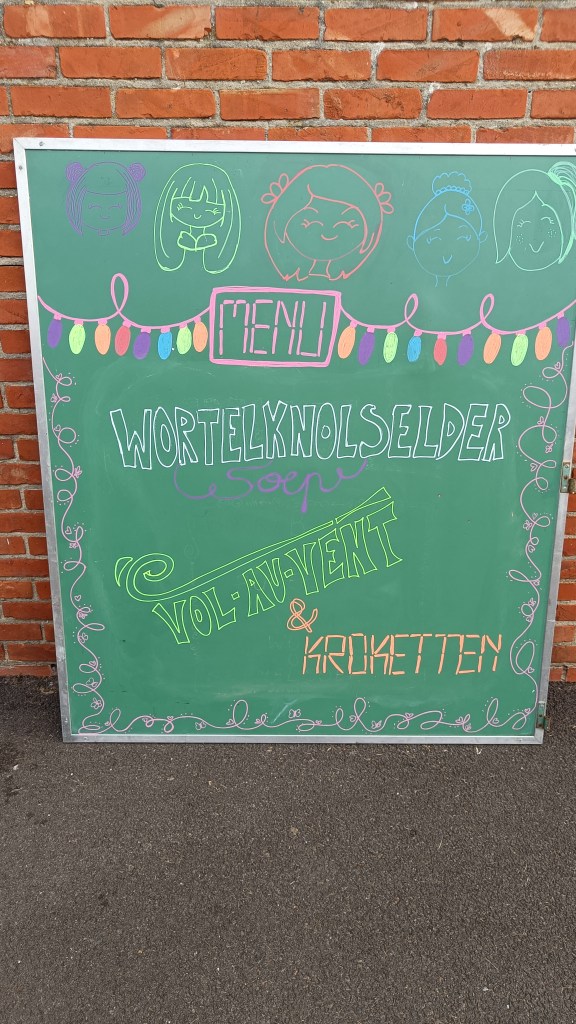 MENU
WORTELKNOLSELDER
Soep
VOL-AU-VENT
&
KROKETTEN